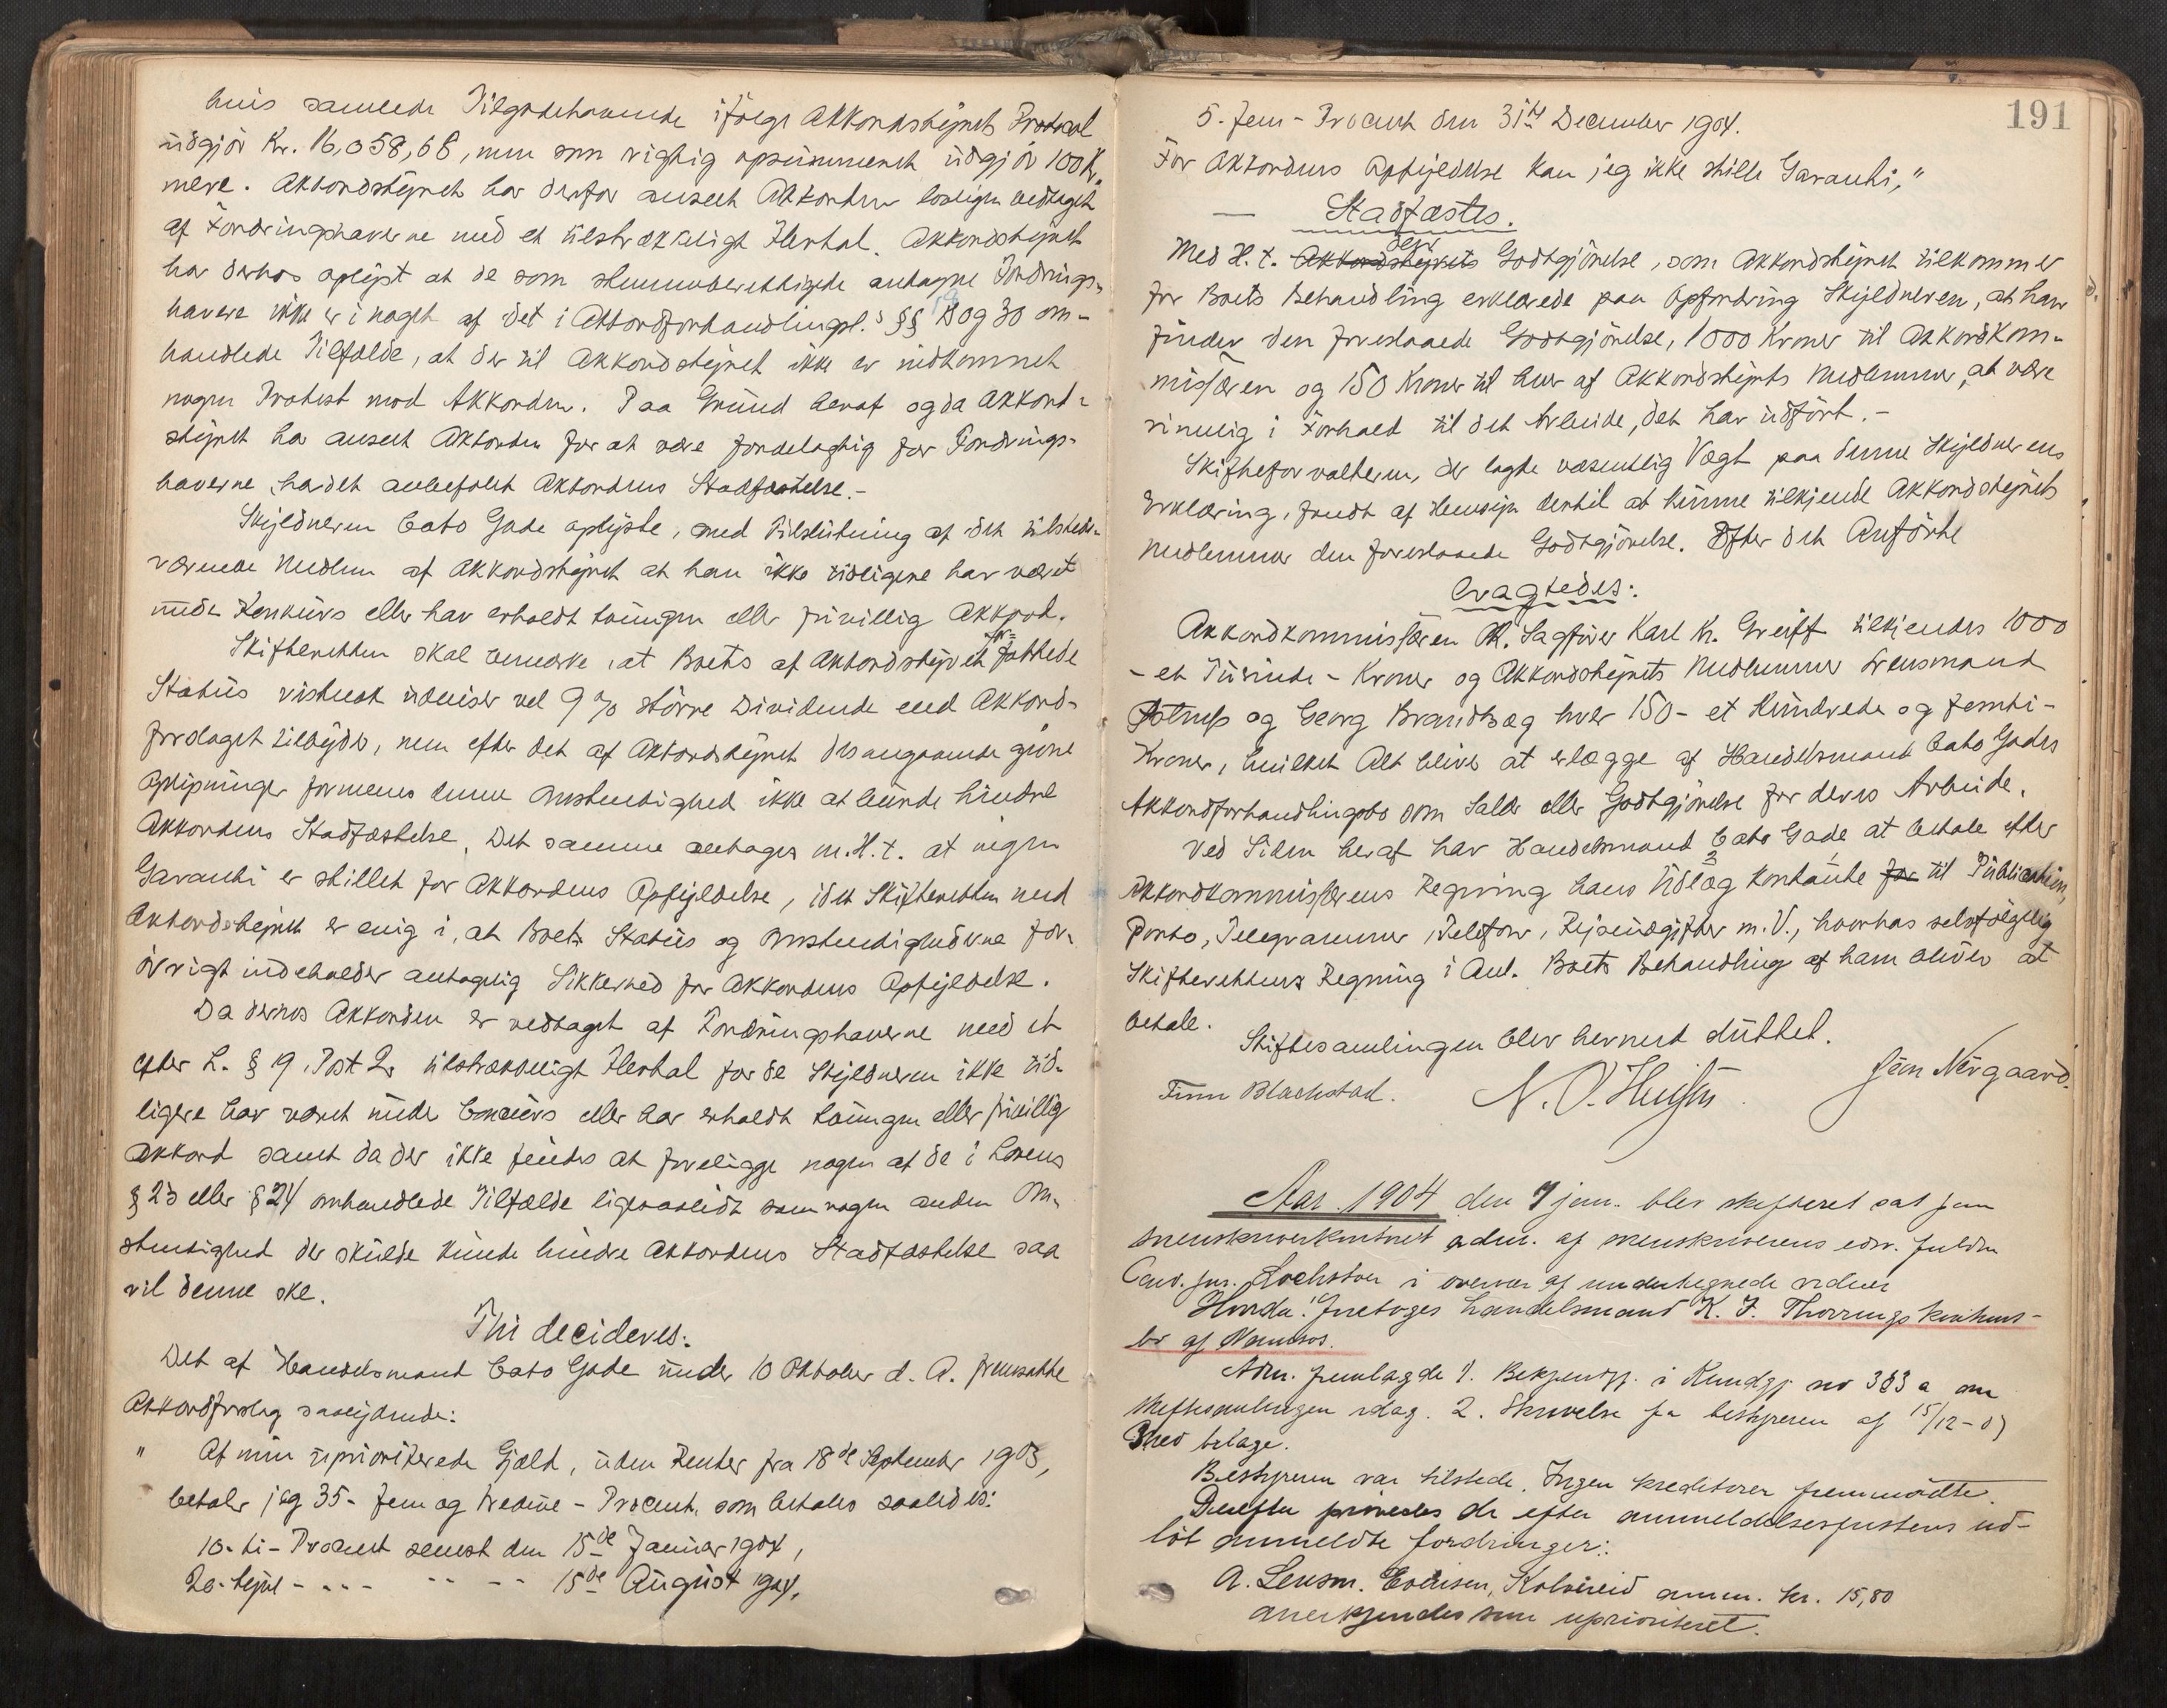 hvis samlede Tilgodehavende ifølge Akkordstyrets Protocol
udgjør Kr. 16,058,68, men som rigtig opsummeret udgjør 100 Kr.
mere. Akkordstyret har derfor anseet Akkorden lovligen vedtaget
af Fordringshaverne med et tilstrækkeligt Flertal. Akkordstyret
har derhos oplyst at de som stemmeberettigede antagne Fordrings-
havere ikke er i noget af det i Akkordforhandlingsl.s §§ 19 og 30 om-
handlede Tilfælde, at der til Akkordstyret ikke er indkommet
nogen Protest mod Akkorden. Paa Grund heraf og da Akkord-
styret har anseet Akkorden for at være fordelagtig for Fordrings-
haverne, har det anbefalet Akkordens Stadfæstelse.-
Skyldneren Cato Gade oplyste, med Tilslutning af det tilstede-
værende Medlem af Akkordstyret at han ikke tidligere har været
under Konkurs eller har erholdt tvungen eller frivillig Akkord.
Skifteretten skal bemærke, at Boets af Akkordstyret for-
fattede
Status vistnok udviser vel 9 % større Dividende end Akkord-
forslaget tilbyder, men efter det af Akkordstyret desangaaende givne
Oplysninger formenes denne Omstendighed ikke at kunde hindre
Akkordens Stadfæstelse. Det samme antages m.H.t. at ingen
Garanti er stillet for Akkordens Opfyldelse, idet Skifteretten med
Akkordstyret er enig i, at Boets Status og Omstendighederne for-
øvrigt indeholder antagelig Sikkerhed for Akkordens Opfyldelse.
Da derhos Akkorden er vedtaget af Fordringshaverne med et
efter L. § 19 Post 2 tilstrækkeligt Flertal for de Skyldneren ikke tid-
ligere har været under Concurs eller har erholdt tvungen eller frivillig
Akkord samt da der ikke findes at foreligge nogen af de i Lovens
§ 23 eller § 24 omhandlede Tilfælde ligesaalidt som nogen anden Om-
stendighed der skulde kunde hindre Akkordens Stadfæstelse saa
vil denne ske.
Thi decideres:
Det af Handelsmand Cato Gade under 10 Oktober d. A. fremsatte
Akkordforslag saalydende:
" Af min uprioriterede Gjæld, uden Renter fra 18de September 1903,
betaler jeg 35- fem og tredive - Procent, som betales saaledes:
10- ti - Procent senest den 15de Januar 1904,
20- tyve - - - - - - - - 15de August 1904,
191
5- fem - Procent den 31te December 1904.
For Akkordens Opfyldelse kan jeg ikke stille Garanti,"
— Stadfæstes.
Med H. t. Akkordstyrets den Godtgjörelse, som Akkordstyret tilkommer
for Boets Behandling erklærede paa Opfordring Skyldneren, at han
finder den foreslaaede Godtgjörelse, 1000 Kroner til Akkordkom-
missæren og 150 Kroner til hver af Akkordstyrets Medlemmer, at være
rimelig i Forhold til det Arbeide, det har udført.-
Skifteforvalteren, der lagde væsentlig Vægt paa denne Skyldnerens
Erklæring, fandt af Hensyn dertil at kunne tilkjende Akkordstyrets
Medlemmer den foreslaaede Godtgjörelse. Efter det Anførte
eragtedes:
Akkordkommissæren Sagfører Karl Kr. Greiff tilkjendes 1000
- et Tusinde - Kroner og Akkordstyrets Medlemmer Lensmand
Astrup og Georg Brandtzæg hver 150- et Hundrede og femti-
Kroner, hvilket Alt bliver at erlægge af Handelsmand Cato Gades
Akkordforhandlingsbo som Salær eller Godtgjörelse for deres Arbeide.
Ved Siden heraf har Handelsmand Cato Gade at betale efter
Akkordkommissærens Regning hans Udlæg Kontante for til Publication,
Porto, Telegrammer, Telefon, Rejseudgifter m. V., hvorhos selvfølgelig
Skifterettens Regning i Anl. Boets Behandling af ham bliver at
betale.
Skiftesamlingen blev hermed sluttet.
Finn Blackstad. Jörn Nergaard.
Aar 1904 den 7 jan. blev skifteret sat paa
sorenskriverkontoret adm. af sorenskriverens edsv. fuldm
Cand. jur. Lockstøer i overvær af undertegnede vidner
Hvorda: Foretoges handelsmand K. F. Thorrings konkurs-
bo af Namsos.
Adm. fremlagde 1. Bekjendtgj. i Kundgj. no 383 a om
skiftesamlingen idag. 2. Skrivelse fra bestyreren af 15/12-03
med bilage.
Bestyreren var tilstede. Ingen kreditorer fremmødte.
Derefter prøvedes de efter anmeldelsesfristens ud-
løb anmeldte fordringer:
A. Lensm. Evensen, Kolvereid anm. kr. 15,80
anerkjendes som uprioriteret.